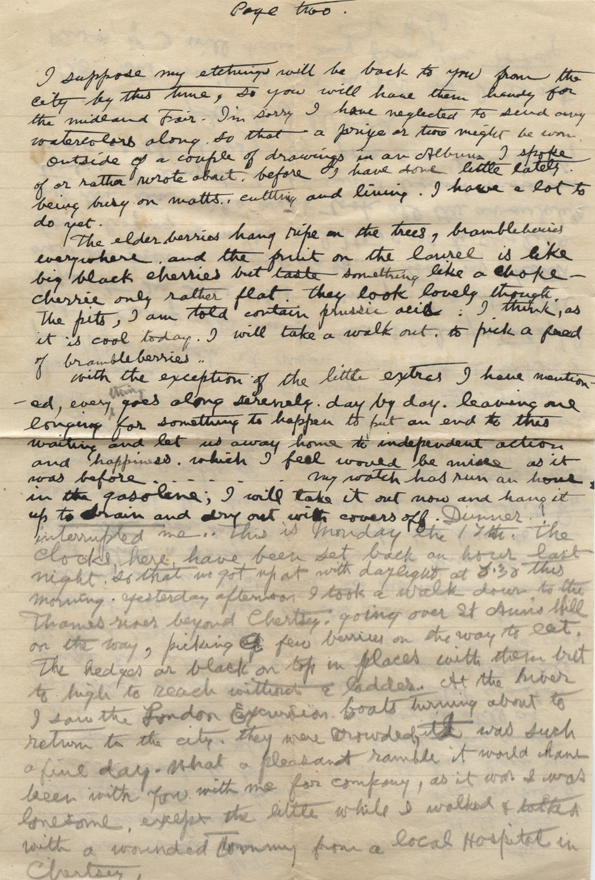 Page two.
I suppose my etchings will be back to you from the
city by this time, so you will have them handy for
the midland Fair. I'm sorry I have neglected to send any
watercolors along. so that a prize or two might be won.
outside of a couple of drawings in an Album I spoke
of or rather wrote about. before I have done little lately.
being busy on matts. cutting and lining. I have a lot to
do yet.
The elderberries hang ripe on the trees, brambleberries
everywhere. and the fruit on the laurel is like
big black cherries but taste something like a choke-
cherrie only rather flat. they look lovely though.
the pits, I am told contain prussic acid. I think, as
it is cool today. I will take a walk out. to pick a feed
of brambleberries..
With the exception of the little extras I have mention-
-ed, everything goes along serenely. day by day. leaving one
longing for something to happen to put an end to this
waiting and let us away home to independent action
and happiness. which I feel would be mine as it
was before . - . - - - - my watch has run an hour
in the gasoline; I will take it out now and hang it
up to drain and dry out with covers off. Dinner!
interrupted me.. This is Monday the 17th. The
clocks, here, have been set back an hour last
night. so that we got up at with daylight at 5:30 this
morning. yesterday afternoon I took a walk down to the
Thames river beyond Chertsey. going over St Anns Hill
on the way, picking a few berries on the way to eat.
The hedges ar black on top in places with them but
to high to reach without a ladder.. At the River
I saw the London Excursion boats turning about to
return to the city. they were crowded, it was such
a fine day. What a pleasant ramble it would have
been with you with me for company, as it was I was
lonesome, except the little while I walked & talked
with a wounded Tommy from a local Hospital in
Chertsey,